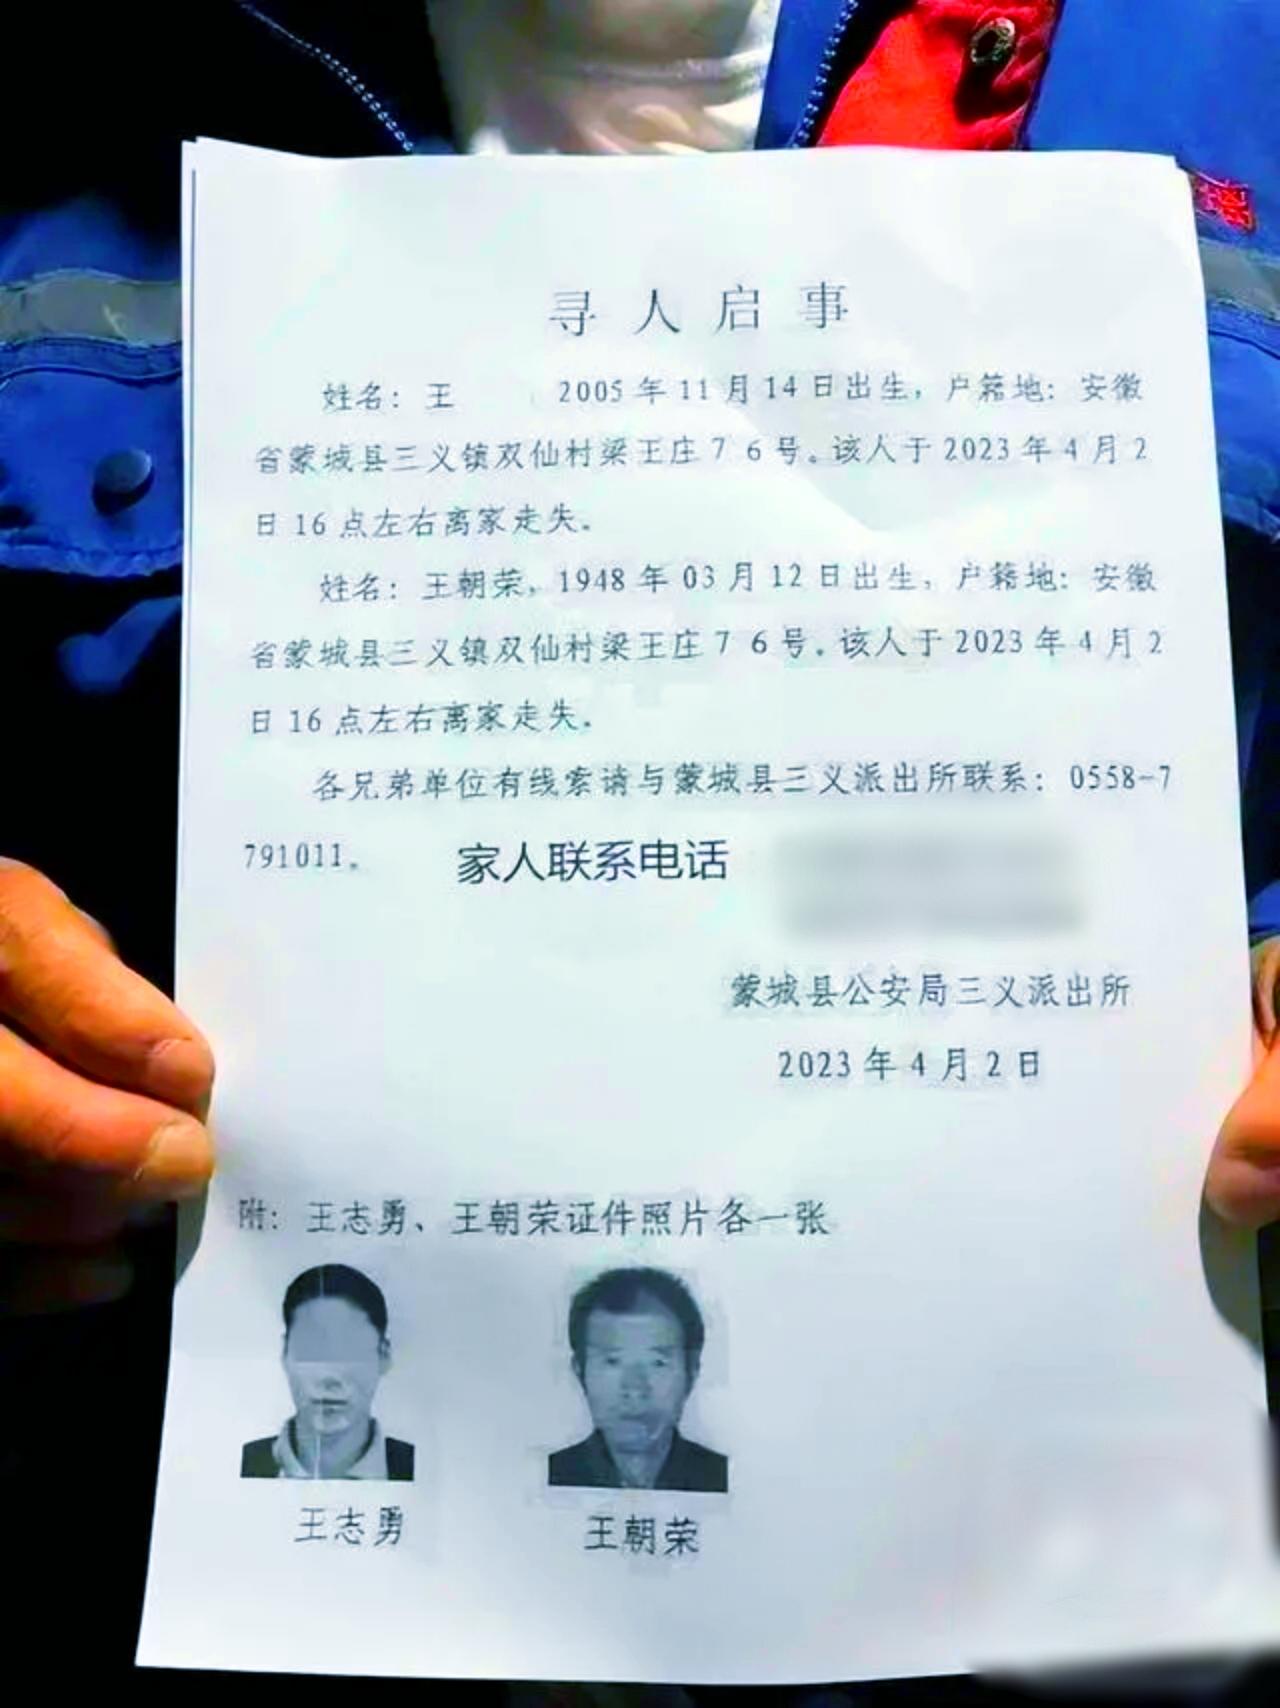 寻人启事
姓名：王 2005年11月14日出生，户籍地：安徽
省蒙城县三义镇双仙村梁王庄76号。该人于2023年4月2
日16点左右离家走失。
姓名：王朝荣，1948年03月12日出生，户籍地：安徽
省蒙城县三义镇双仙村梁王庄76号。该人于2023年4月2
日16点左右离家走失。
各兄弟单位有线索请与蒙城县三义派出所联系：0558-7
791011。 家人联系电话
蒙城县公安局三义派出所
2023年4月2日
附：王志勇、王朝荣证件照片各一张
王志勇 王朝荣